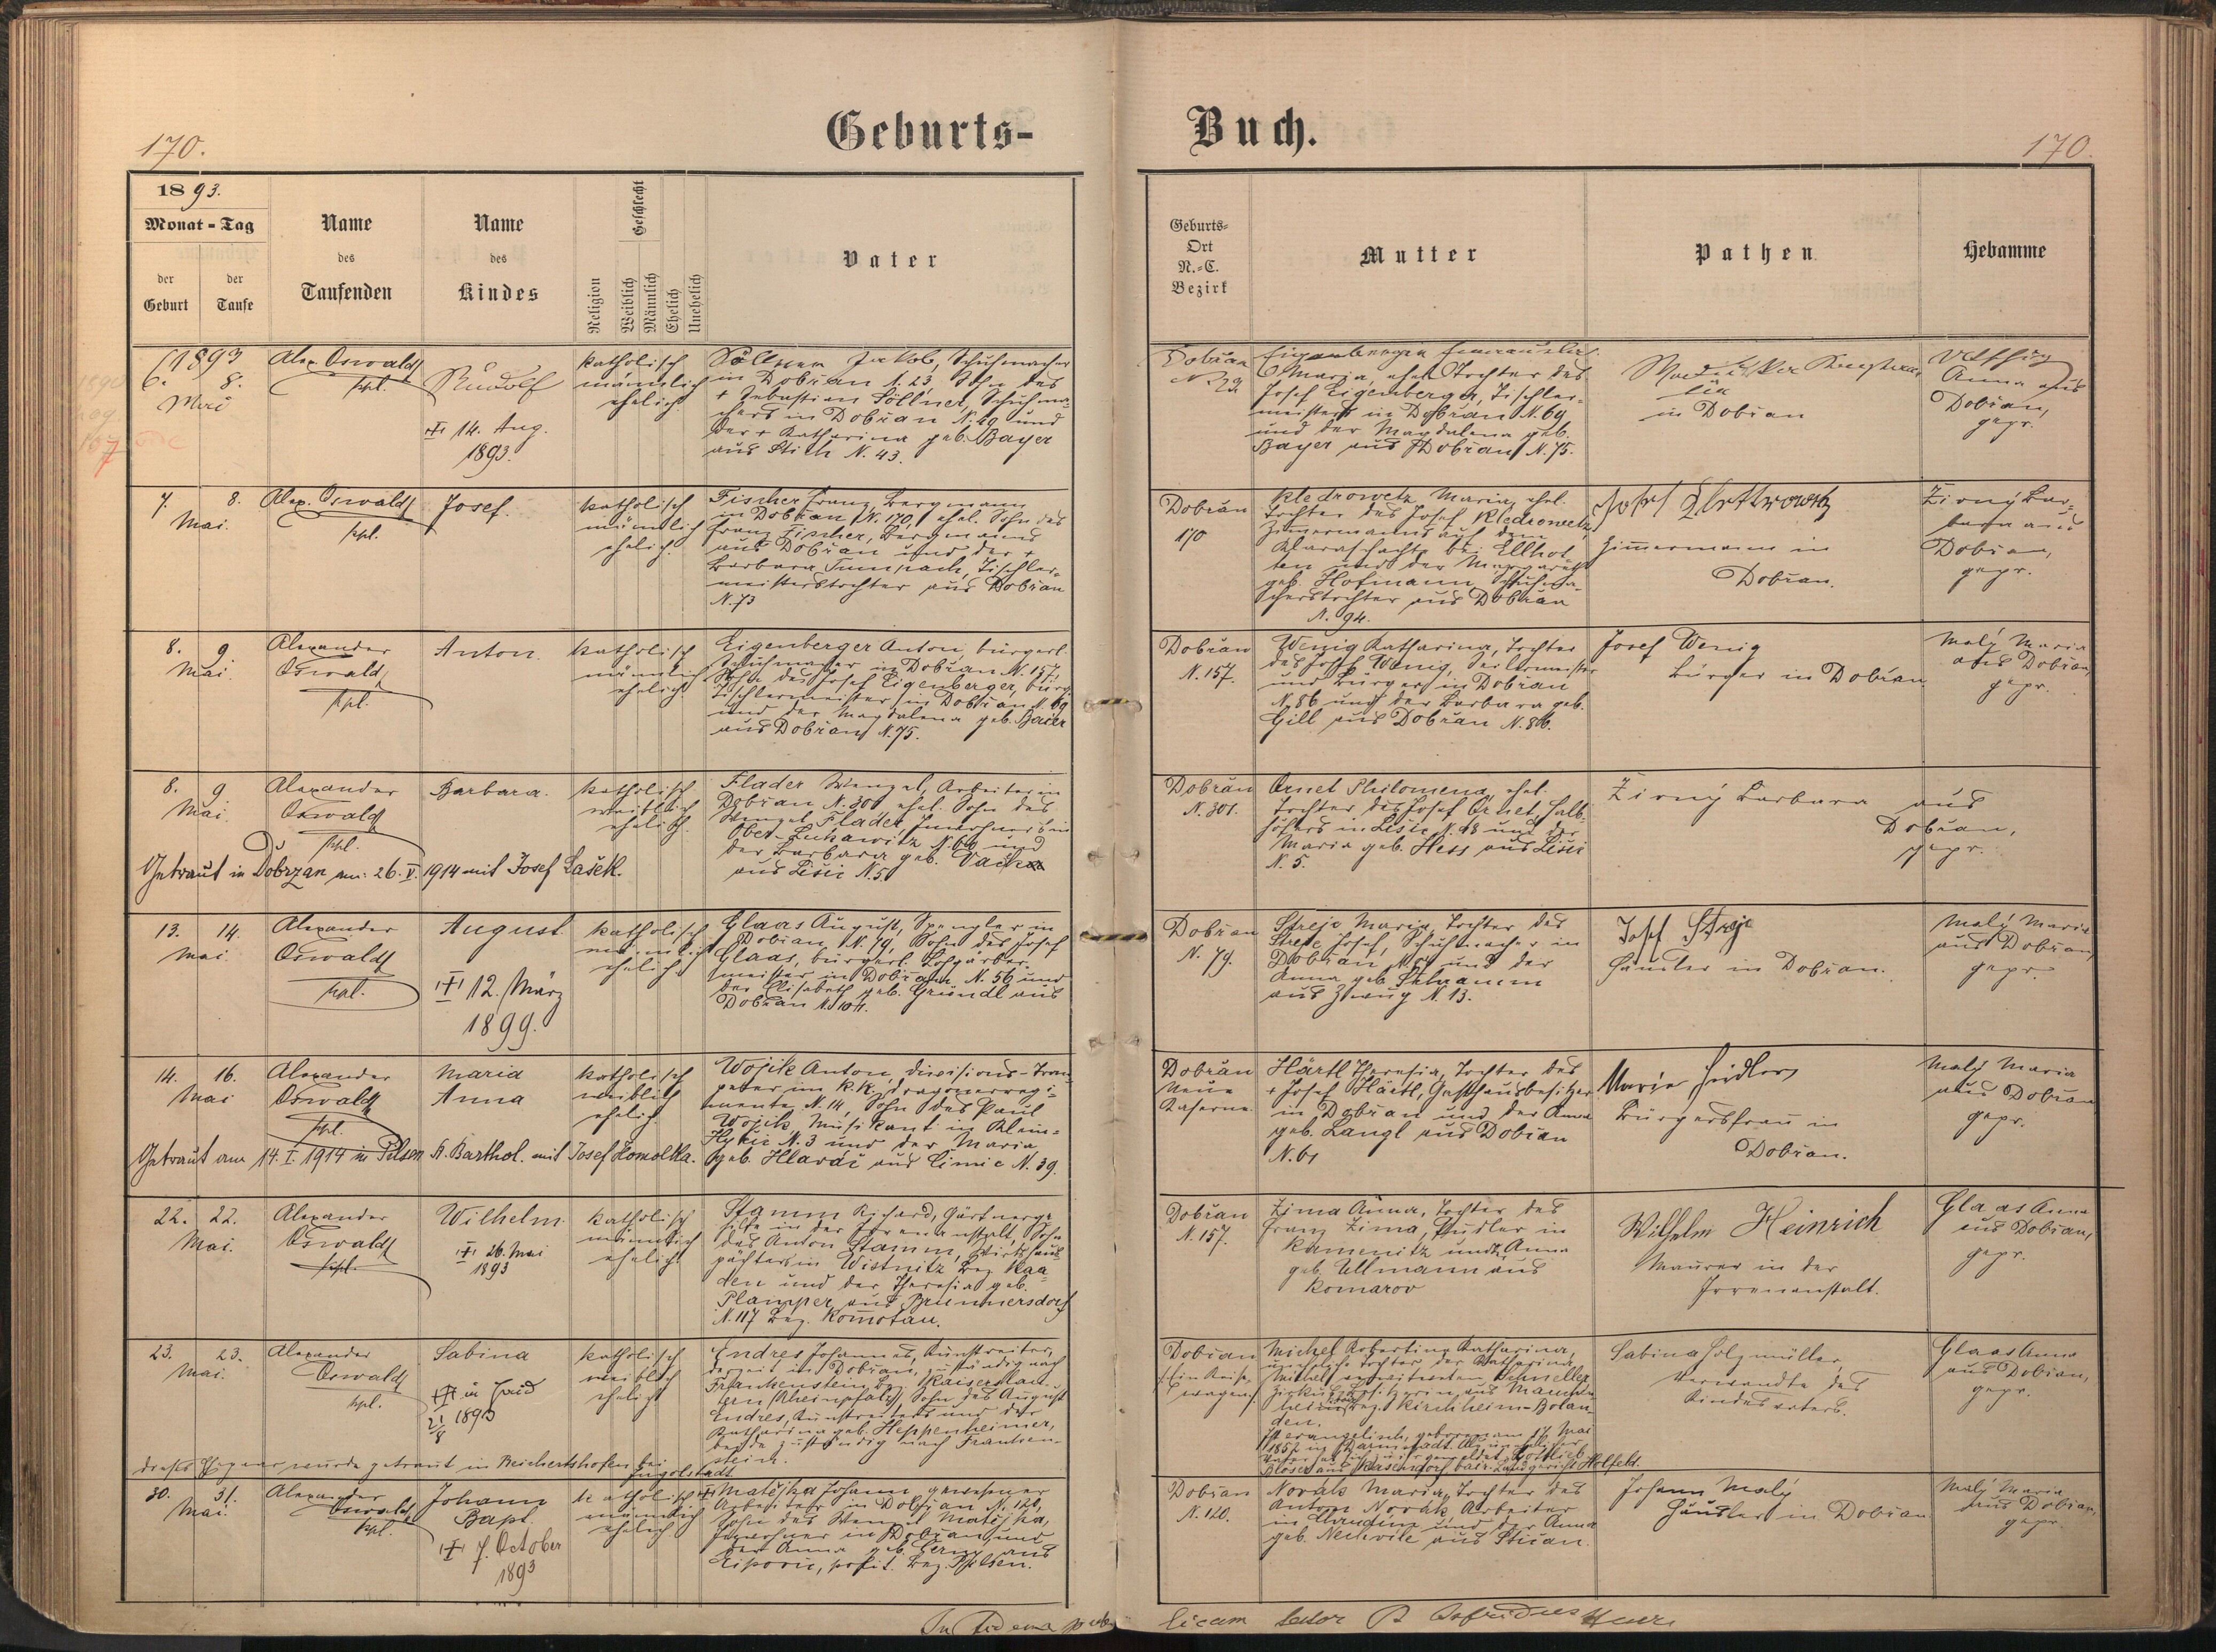 170.
Geburts-
Buch.
170.
1893.
Monat - Tag
der
Geburt
der
Taufe
Name
des
Taufenden
Name
des
Kindes
Religion
Geschlecht
Weiblich
Männlich
Ehelich
Unehelich
Vater
Geburts-
Ort
N.-C.
Bezirk
Mutter
Pathen
Hebamme
1893
6. 8.
Mai
Alex. Oswald
kpl.
Rudolf
14. Aug.
1893.
katholisch
männlich
ehelich
Söllner Jakob, Schuhmacher
in Dobřan N. 23, Sohn des
+ Sebastian Söllner, Schuhma-
chers in Dobřan N. 29 und
der + Katharina geb. Bayer
aus Stich N. 43.
Dobřan
N. 23
Maria, ehel. Tochter des
Josef Eigenberger, Tischler-
meisters in Dobřan N. 69
und der Magdalena geb.
Bayer aus Dobřan N. 75.
in Dobřan
Anna aus
Dobřan,
gepr.
7. 8.
Mai.
Alex. Oswald
kpl.
Josef.
katholisch
männlich
ehelich
Fischer Franz, Bergmann
in Dobřan N. 170, ehel. Sohn des
Franz Fischer, Bergmanns
aus Dobřan und der +
Barbara, Tischler-
meisterstochter aus Dobřan
N. 73
Dobřan
170
Kledrowetz Maria, ehel.
Tochter des Josef Kledrowetz,
Zimmermanns auf dem
Klaraschachte bei Ellhot-
ten und der Margareth
geb. Hofmann, Schuhma-
cherstochter aus Dobřan
N. 94.
Josef
Zimmermann in
Dobřan.
Žirný Bar-
bara aus
Dobřan,
gepr.
8. 9
Mai.
Alexander
Oswald,
kpl.
Anton.
katholisch
männlich
ehelich
Eigenberger Anton, bürgerl.
Schuhmacher in Dobřan N. 157,
Sohn des Josef Eigenberger, bürg.
Tischlermeister in Dobřan N. 69
und der Magdalena geb. Baier
aus Dobřan N. 75.
Dobřan
N. 157.
Wenig Katharina, Tochter
des Josef Wenig, Seilermeister
und Bürger in Dobřan
N. 86 und der Barbara geb.
Gill aus Dobřan N. 86.
Josef Wenig
Bürger in Dobřan
Malý Maria
aus Dobřan,
gepr.
8. 9
Mai.
Alexander
Oswald
kpl.
Barbara.
katholisch
weiblich
ehelich.
Flader Wenzel, Arbeiter in
Dobřan N. 301, ehel. Sohn des
Wenzel Flader, Inwohners in
Ober-Lukawitz N. 66 und
der Barbara geb.
aus Lišic N. 5
Getraut in Dobrzan am: 26. V. 1914 mit Josef Lašek.
Dobřan
N. 301.
Ornet Philomena, ehel.
Tochter des Josef Ornet, Halb-
höfers in Lišic N. 18 und der
Maria geb. Hess aus Lišic
N. 5.
Žirný Barbara aus
Dobřan,
gepr.
13. 14.
Mai.
Alexander
Oswald
kpl.
August.
12. März
1899.
katholisch
männlich
ehelich
Glaas August, Spengler in
Dobřan N. 79, Sohn des Josef
Glaas, bürgerl. Lohgärber-
meister in Dobřan N. 56 und
der Elisabeth geb. Gründl aus
Dobřan N. 104.
Dobřan
N. 79.
Streje Maria, Tochter des
Streje Josef, Schuhmacher in
Dobřan und der
Anna geb. Schramm
aus Zwug N. 13.
Josef Streje
Häusler in Dobřan.
Malý Maria
aus Dobřan,
gepr.
14. 16.
Mai
Alexander
Oswald
kpl.
Maria
Anna
katholisch
weiblich
ehelich
Wojik Anton, Divisions-Trom-
peter im k.k. Dragonerregi-
mente N. 14, Sohn des Paul
Wojik, Musikant in Klein-
N. 3 und der Maria
geb. Hlaváč aus Čimic N. 39.
Getraut am 14. I. 1914 in Pilsen St. Barthol. mit Josef Homolka.
Dobřan
Neue
Kaserne.
Härtl Theresia, Tochter des
+ Josef Härtl, Gasthausbesitzer
in Dobřan und der Anna
geb. Langl aus Dobřan
N. 61
Maria
Bürgersfrau in
Dobřan.
Malý Maria
aus Dobřan
gepr.
22. 22.
Mai.
Alexander
Oswald
kpl.
Wilhelm.
26. Mai
1893
katholisch
männlich
ehelich
Stamm Richard, Gärtnerge-
hilfe in der Irrenanstalt, Sohn
des Anton Stamm, Wirthshaus-
pächters in Wistritz Bez. Kaa-
den und der Theresia geb.
Plamper aus Brunnersdorf
N. 117 Bez. Komotau.
Dobřan
N. 157.
Zima Anna, Tochter des
Franz Zima, Häusler in
Kamenitz und Anna
geb. Ullmann aus
Komarov
Wilhelm Heinrich
Maurer in der
Irrenanstalt.
Glaas Anna
aus Dobřan,
gepr.
23. 23.
Mai.
Alexander
Oswald
kpl.
Sabina
in Fürth
21/8 1893
katholisch
weiblich
ehelich
Endres Johannes, Kunstreiter,
derzeit in Dobřan, zuständig nach
Frankenstein Bez. Kaiserslau-
tern (Rheinpfalz), Sohn des August
Endres, Kunstreiters und der
Katharina geb. Heppenheimer,
beide zuständig nach Franken-
stein.
wurde getraut in Reichertshofen bei
Ingolstadt
Dobřan
Michel Robertina Katharina,
uneheliche Tochter der Katharina
Michel verwitweten Schneller,
Bez. Kirchheim-Bolan-
den.
Ist evangelisch, geboren am 17. Mai
1857 in Darmstadt.
Hollfeld.
Sabina Holzmüller,
Verwandte des
Kindesvaters.
Glaas Anna
aus Dobřan,
gepr.
30. 31.
Mai.
Alexander
Oswald,
kpl.
Johann
Bapt.
7. October
1893
katholisch
männlich
ehelich
Matějka Johann, gewesener
Arbeiter in Dobřan N. 120,
Sohn des Wenzel Matějka,
Inwohner in Dobřan und
der Anna geb. Černy aus
Bez. Pilsen.
Dobřan
N. 120.
Novák Maria, Tochter des
Anton Novák, Arbeiter
in Chrudim und der Anna
geb. Nechvile aus
Johann Malý
Häusler in Dobřan
Malý Maria
aus Dobřan,
gepr.